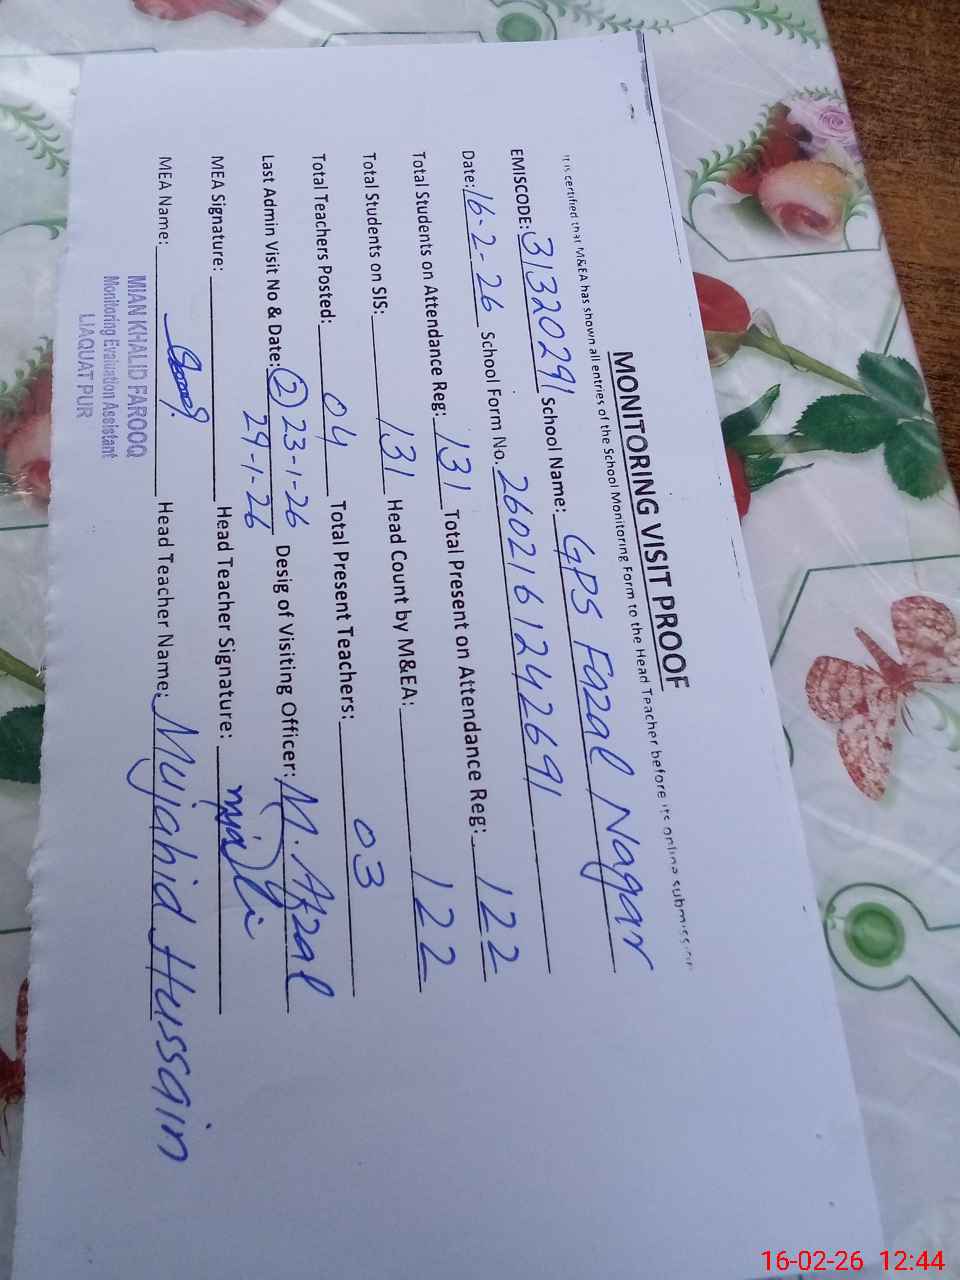 MONITORING VISIT PROOF
It is certified that M&EA has shown all entries of the School Monitoring Form to the Head Teacher before its online submission
EMISCODE: 31320291 School Name: GPS Fazal Nagar
Date: 16-2-26 School Form No. 2602161242691
Total Students on Attendance Reg: 131 Total Present on Attendance Reg: 122
Total Students on SIS: 131 Head Count by M&EA: 122
Total Teachers Posted: 04 Total Present Teachers: 03
Last Admin Visit No & Date: (2) 23-1-26 Desig of Visiting Officer: M. Afzal
29-1-26
MEA Signature: Head Teacher Signature:
MEA Name: Head Teacher Name: Mujahid Hussain
MIAN KHALID FAROOQ
Monitoring Evaluation Assistant
LIAQUAT PUR
16-02-26 12:44